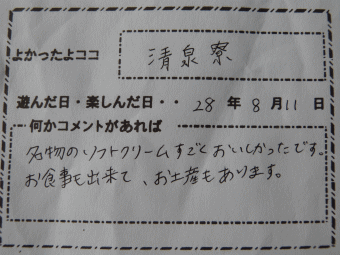 よかったよココ 清泉寮
遊んだ日・楽しんだ日・・ 28 年 8 月 11 日
何かコメントがあれば
名物のソフトクリームすごくおいしかったです。
お食事も出来て、お土産もあります。